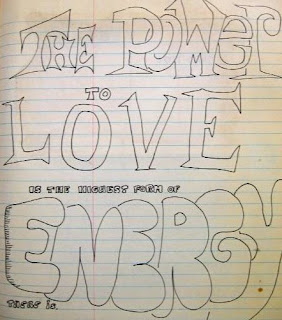 THE POWER
TO
LOVE
IS THE HIGHEST FORM OF
ENERGY
THERE IS.